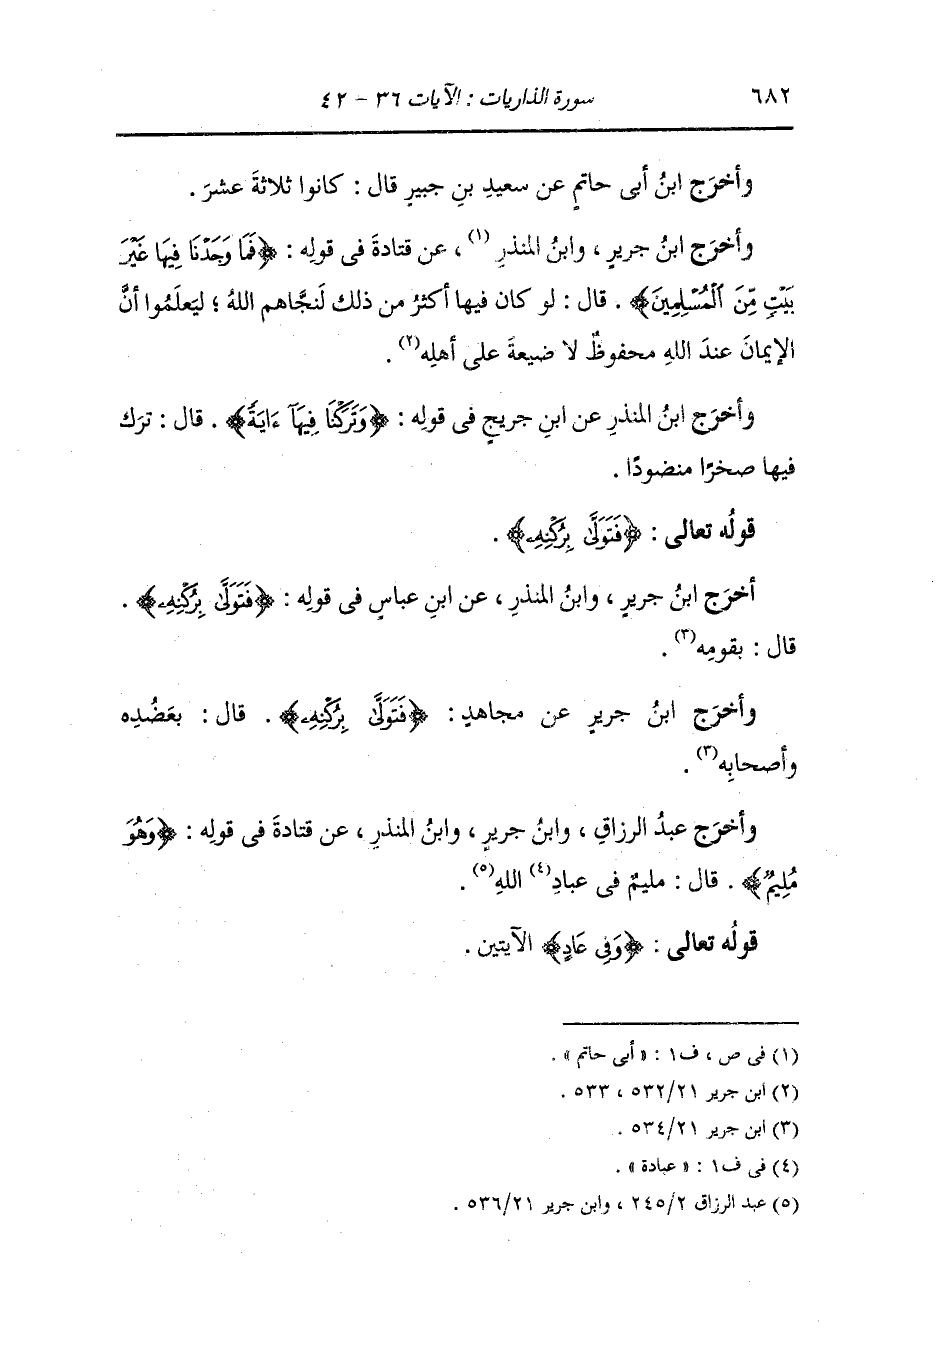 ٦٨٢ سورة الذاريات : الآيات ٣٦ - ٤٢
وأخرَج ابنُ أبى حاتمٍ عن سعيدِ بنِ جبيرٍ قال : كانوا ثلاثةَ عشرَ .
وأخرَج ابنُ جريرٍ ، وابنُ المنذرِ (١) ، عن قتادةَ فى قولِه : ﴿فَمَا وَجَدْنَا فِيهَا غَيْرَ
بَيْتٍ مِّنَ ٱلْمُسْلِمِينَ﴾ . قال : لو كان فيها أكثرُ من ذلك لَنجَّاهم اللهُ ؛ ليَعلَمُوا أنَّ
الإيمانَ عندَ اللهِ محفوظٌ لا ضيعةَ على أهلِه(٢) .
وأخرَج ابنُ المنذرِ عن ابنِ جريجٍ فى قولِه : ﴿وَتَرَكْنَا فِيهَآ ءَايَةً﴾ . قال : ترَك
فيها صخرًا منضودًا .
قولُه تعالى : ﴿فَتَوَلَّىٰ بِرُكْنِهِۦ﴾ .
أخرَج ابنُ جريرٍ ، وابنُ المنذرِ ، عن ابنِ عباسٍ فى قولِه : ﴿فَتَوَلَّىٰ بِرُكْنِهِۦ﴾ .
قال : بقومِه(٣) .
وأخرَج ابنُ جريرٍ عن مجاهدٍ : ﴿فَتَوَلَّىٰ بِرُكْنِهِۦ﴾ . قال : بعَضُدِه
وأصحابِه(٣) .
وأخرَج عبدُ الرزاقِ ، وابنُ جريرٍ ، وابنُ المنذرِ ، عن قتادةَ فى قولِه : ﴿وَهُوَ
مُلِيمٌ﴾ . قال : مليمٌ فى عبادِ(٤) اللهِ(٥) .
قولُه تعالى : ﴿وَفِى عَادٍ﴾ الآيتين .
(١) فى ص ، ف١ : « أبى حاتم » .
(٢) ابن جرير ٥٣٢/٢١ ، ٥٣٣ .
(٣) ابن جرير ٥٣٤/٢١ .
(٤) فى ف١ : « عبادة » .
(٥) عبد الرزاق ٢٤٥/٢ ، وابن جرير ٥٣٦/٢١ .